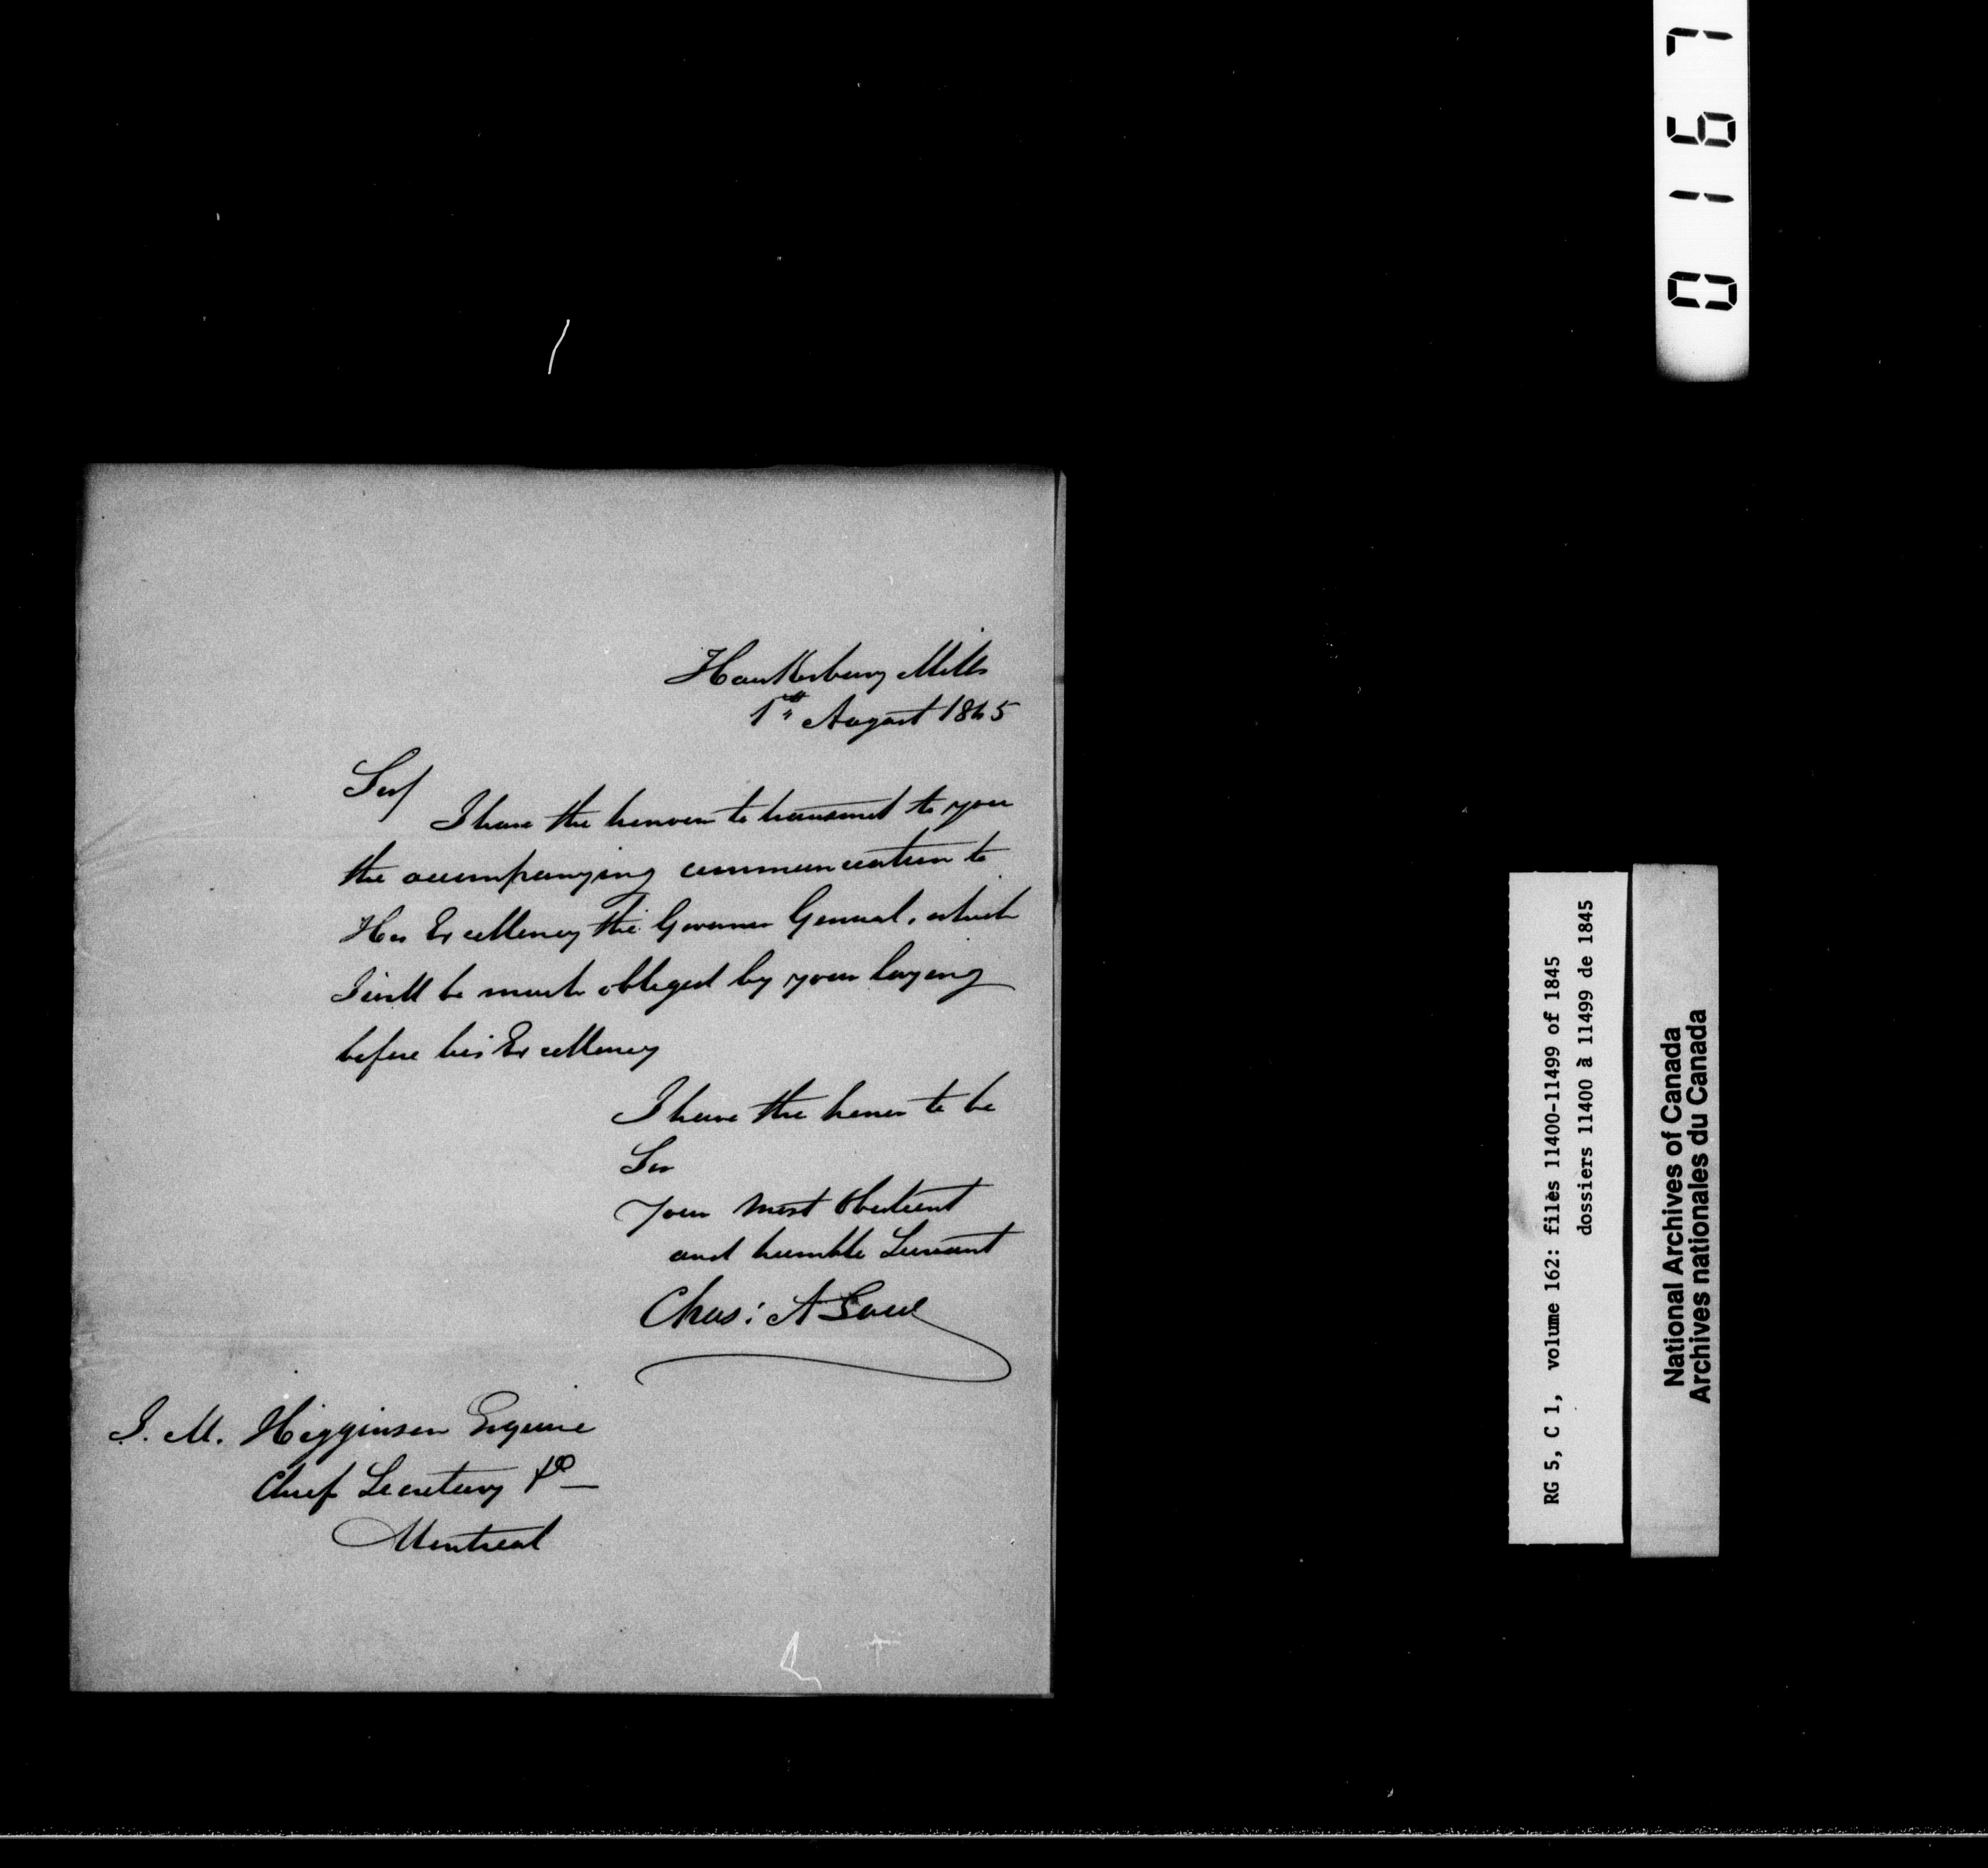 0167
Hawkesbury Mills
1st August 1845
Sir/
I have the honor to transmit to you
the accompanying communication to
His Excellency the Governor General, which
I will be much obliged by your laying
before his Excellency
I have the honor to be
Sir
Your Most Obedient
and humble Servant
Chas: A Low
J. M. Higginson Esquire
Chief Secretary &c
Montreal
RG 5, C 1, volume 162: files 11400-11499 of 1845
dossiers 11400 à 11499 de 1845
National Archives of Canada
Archives nationales du Canada